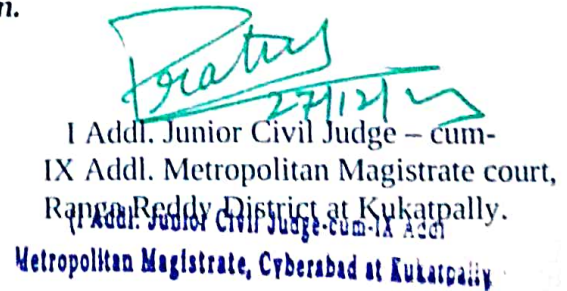 n.
27/12/
I Addl. Junior Civil Judge – cum-
IX Addl. Metropolitan Magistrate court,
Ranga Reddy District at Kukatpally.
(I Addl. Junior Civil Judge-cum-IX Addl
Metropolitan Magistrate, Cyberabad at Kukatpally